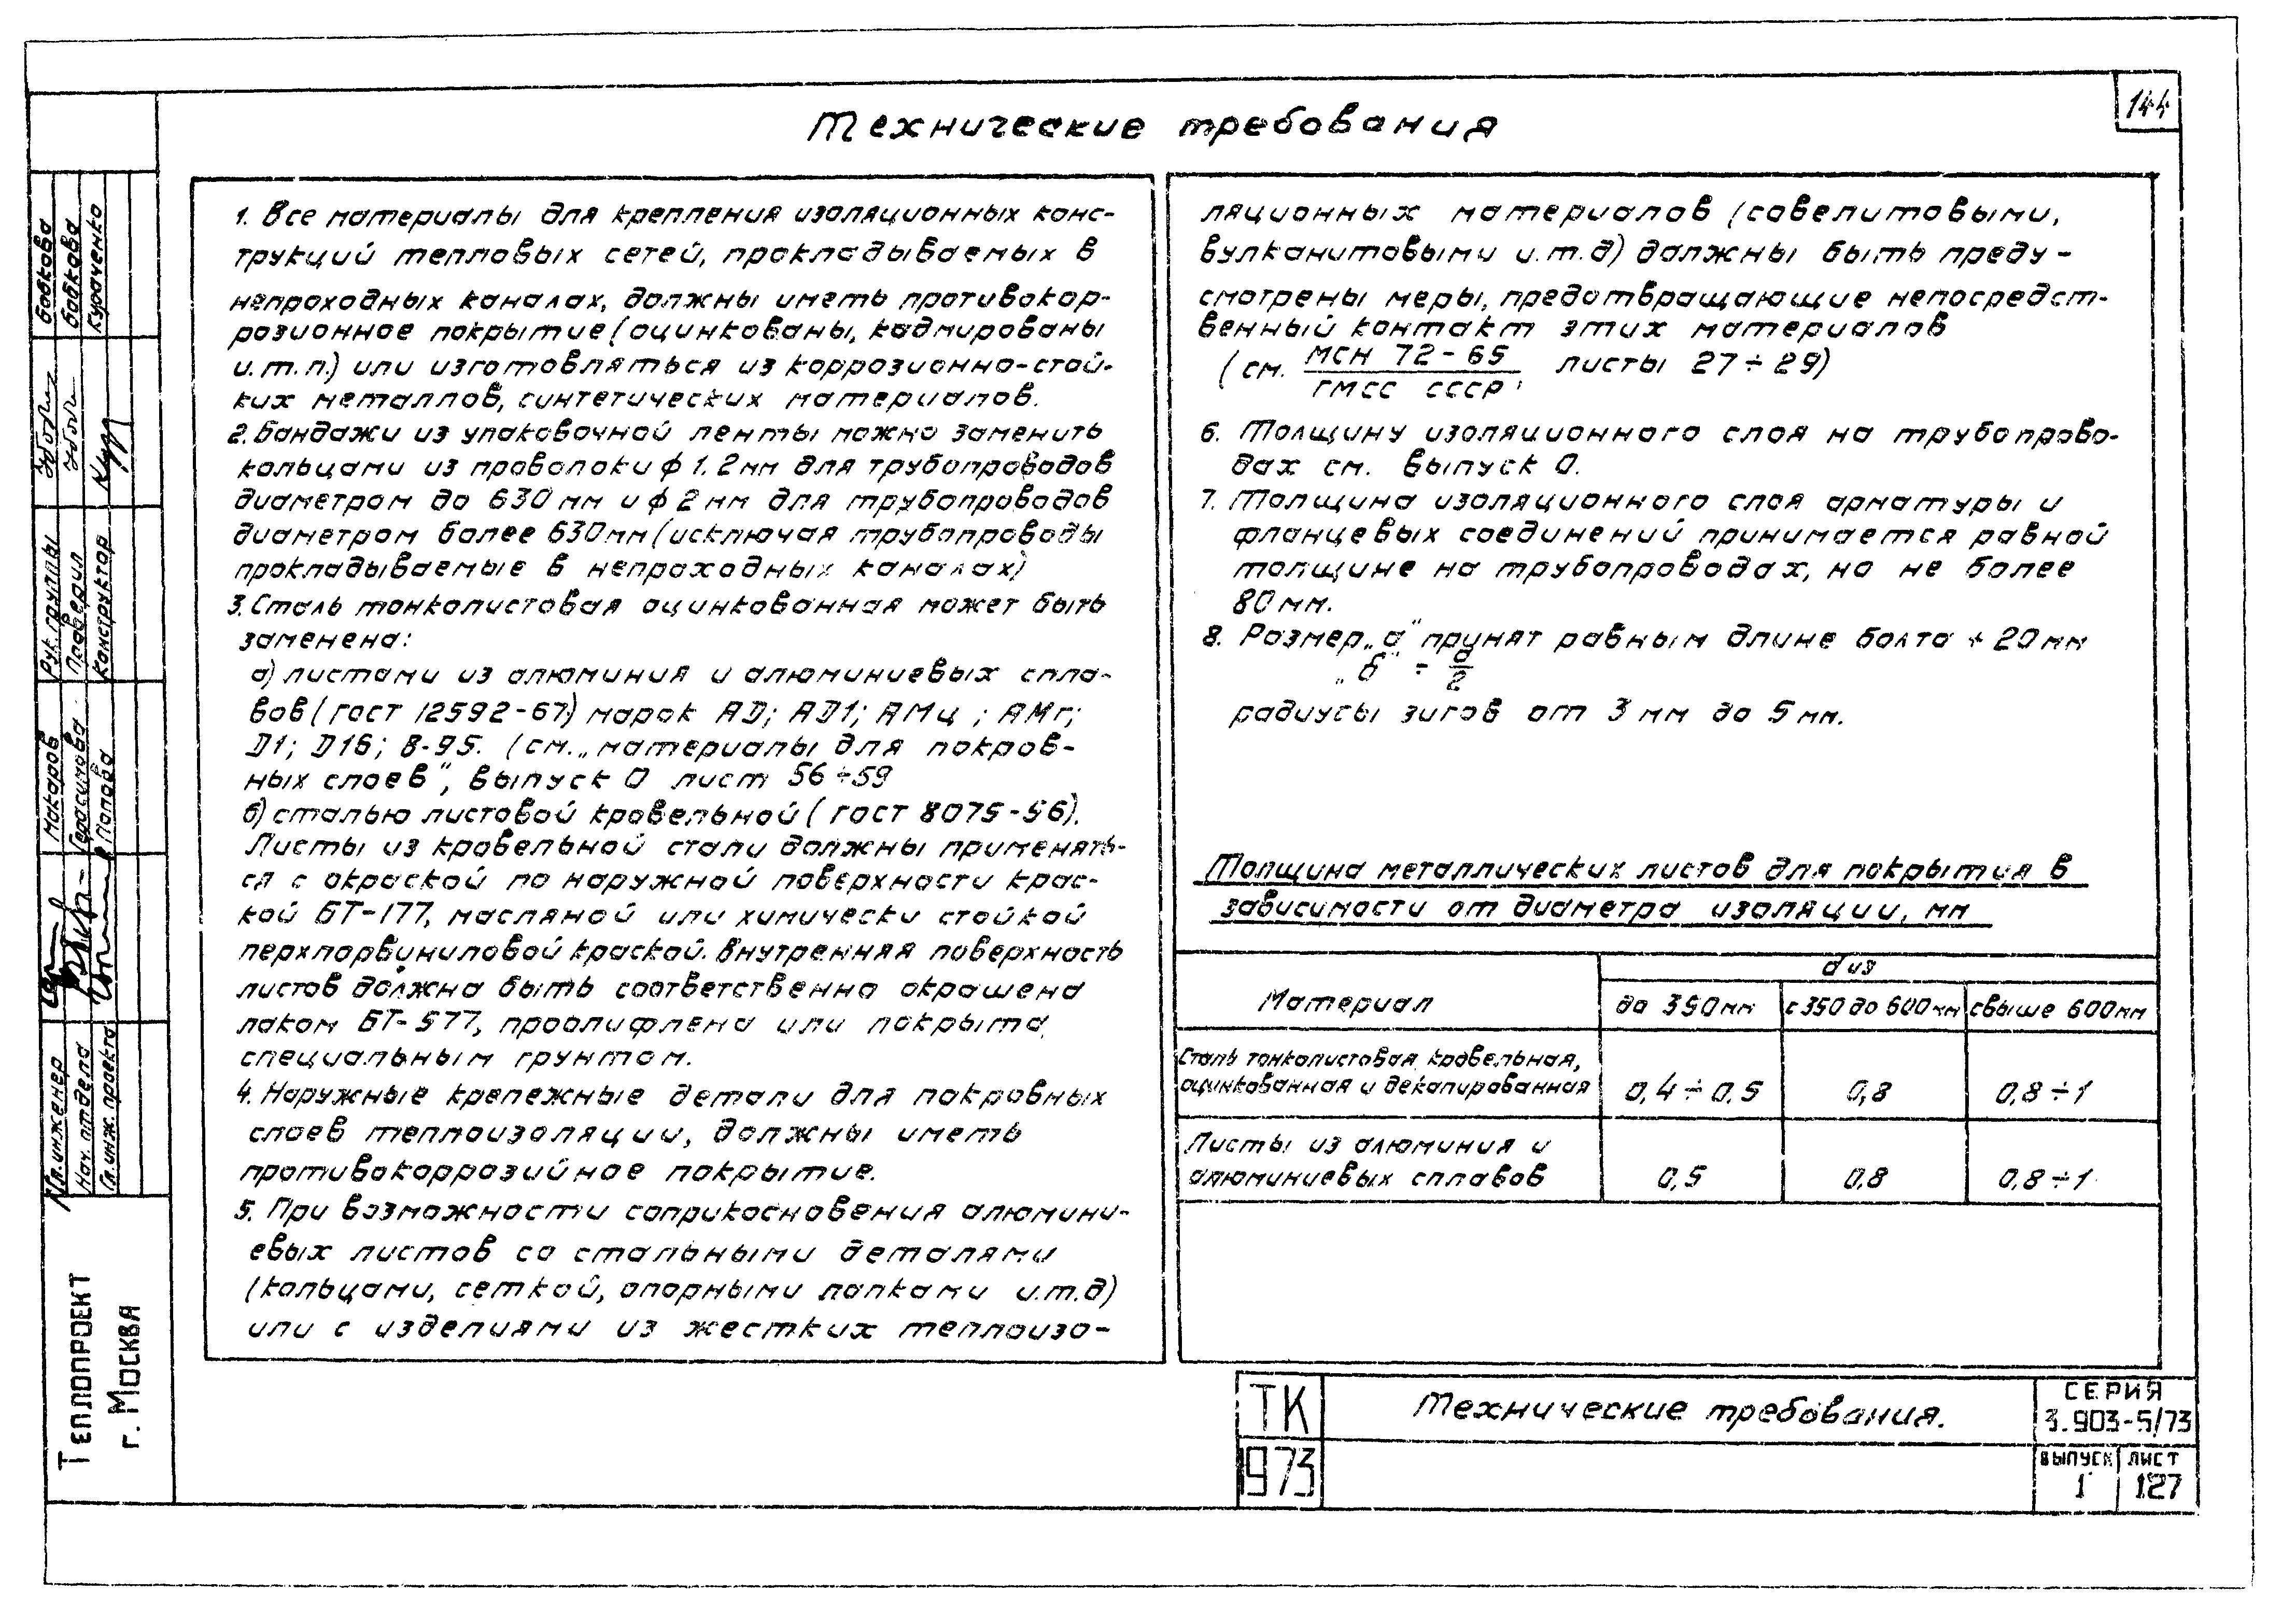 144
Технические требования
1. Все материалы для крепления изоляционных конс-
трукций тепловых сетей, прокладываемых в
непроходных каналах, должны иметь противокор-
розионное покрытие (оцинкованы, кадмированы
и.т.п.) или изготовляться из коррозионно-стой-
ких металлов, синтетических материалов.
2. Бандажи из упаковочной ленты можно заменить
кольцами из проволоки ф 1.2мм для трубопроводов
диаметром до 630 мм и ф 2 мм для трубопроводов
диаметром более 630мм (исключая трубопроводы
прокладываемые в непроходных каналах)
3. Сталь тонколистовая оцинкованная может быть
заменена:
а) листами из алюминия и алюминиевых спла-
вов (ГОСТ 12592-67) марок АД; АД1; АМц ; АМг;
Д1; Д16; В-95. (см. „материалы для покров-
ных слоев", выпуск 0 лист 56÷59
б) сталью листовой кровельной ( ГОСТ 8075-56).
Листы из кровельной стали должны применять-
ся с окраской по наружной поверхности крас-
кой БТ-177, масляной или химически стойкой
перхлорвиниловой краской. Внутренняя поверхность
листов должна быть соответственно окрашена
лаком БТ-577, проолифлена или покрыта
специальным грунтом.
4. Наружные крепежные детали для покровных
слоев теплоизоляции, должны иметь
противокоррозийное покрытие.
5. При возможности соприкосновения алюмини-
евых листов со стальными деталями
(кольцами, сеткой, опорными лапками и.т.д)
или с изделиями из жестких теплоизо-
ляционных материалов (совелитовыми,
вулканитовыми и.т.д) должны быть преду-
смотрены меры, предотвращающие непосредст-
венный контакт этих материалов
(см. МСН 72-65 / ГМСС СССР, листы 27÷29)
6. Толщину изоляционного слоя на трубопрово-
дах см. выпуск 0.
7. Толщина изоляционного слоя арматуры и
фланцевых соединений принимается равной
толщине на трубопроводах, но не более
80 мм.
8. Размер „а" принят равным длине болта + 20 мм
„б" ÷ а/2
радиусы зигов от 3 мм до 5 мм.
Толщина металлических листов для покрытия в
зависимости от диаметра изоляции, мм
Материал
d из
до 350мм с 350 до 600 мм свыше 600мм
Сталь тонколистовая кровельная,
оцинкованная и декапированная 0,4÷0,5 0,8 0,8÷1
Листы из алюминия и
алюминиевых сплавов 0,5 0,8 0,8÷1
ТК
1973
Технические требования.
СЕРИЯ
3.903-5/73
ВЫПУСК ЛИСТ
1 127
Гл. инженер Макаров
Нач. отдела Герасимова
Гл. инж. проекта Попова
Рук. группы Бабкова
Проверил Бабкова
Конструктор Кураченко
ТЕПЛОПРОЕКТ
г. МОСКВА